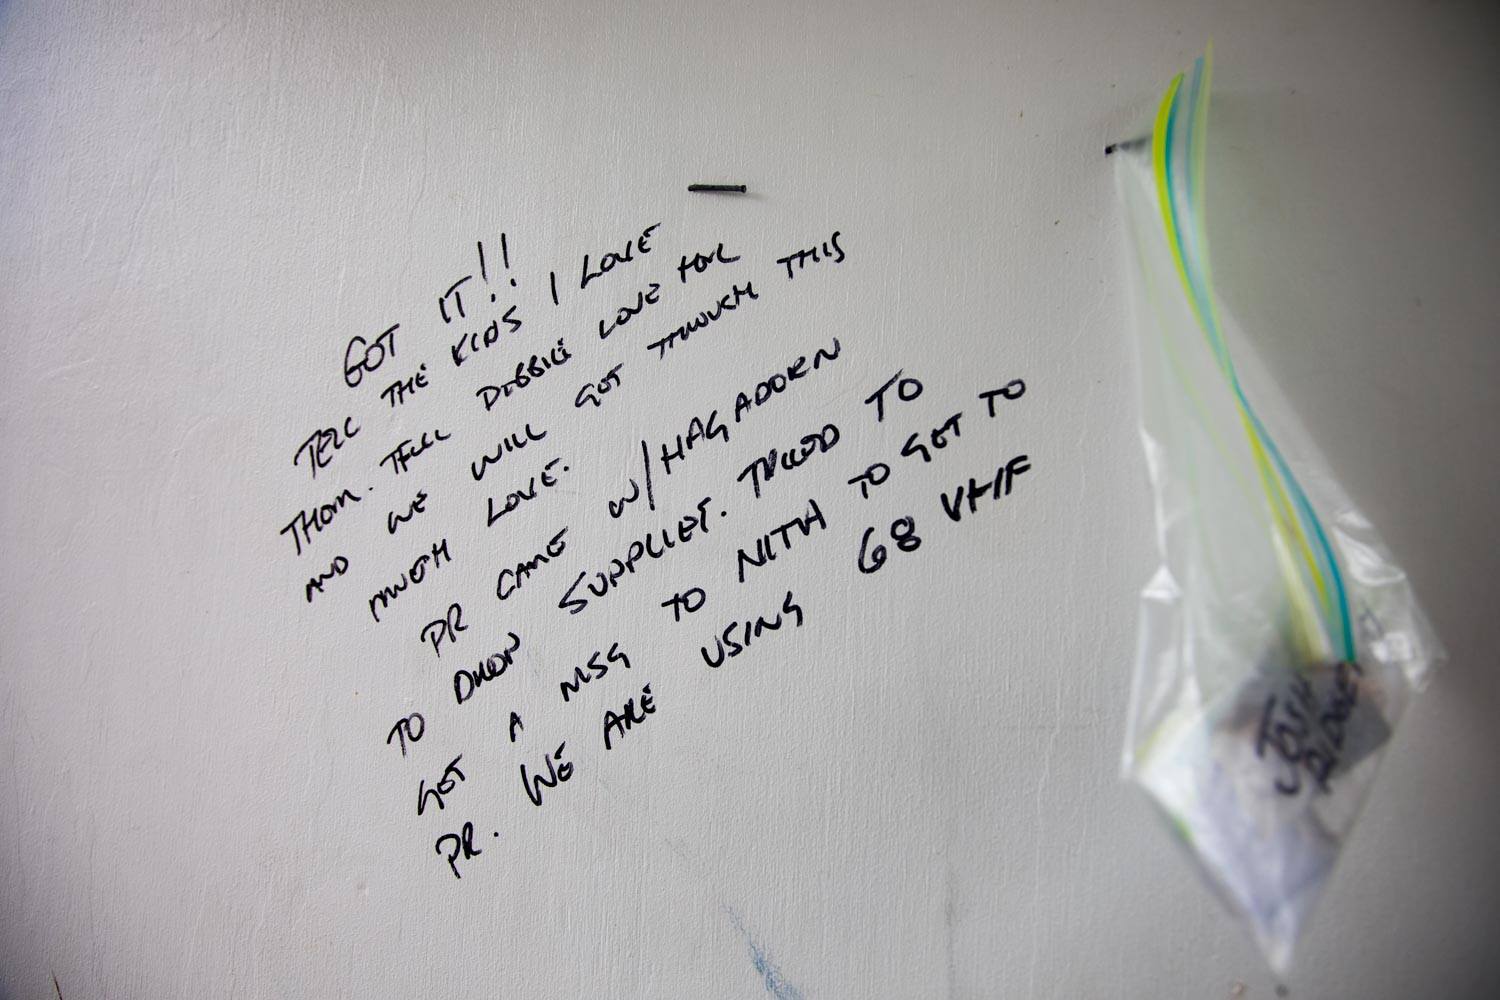 GOT IT!!
TELL THE KIDS I LOVE
THOM. TELL DEBBIE LOVE HOR
AND WE WILL GOT THOUGH THIS
MUCH LOVE.
PR CAME W/HAGADORN
TO DROP SUPPLIES. TRIED TO
GET A MSG TO NITA TO GET TO
PR. WE ARE USING 68 VHF
JOSH